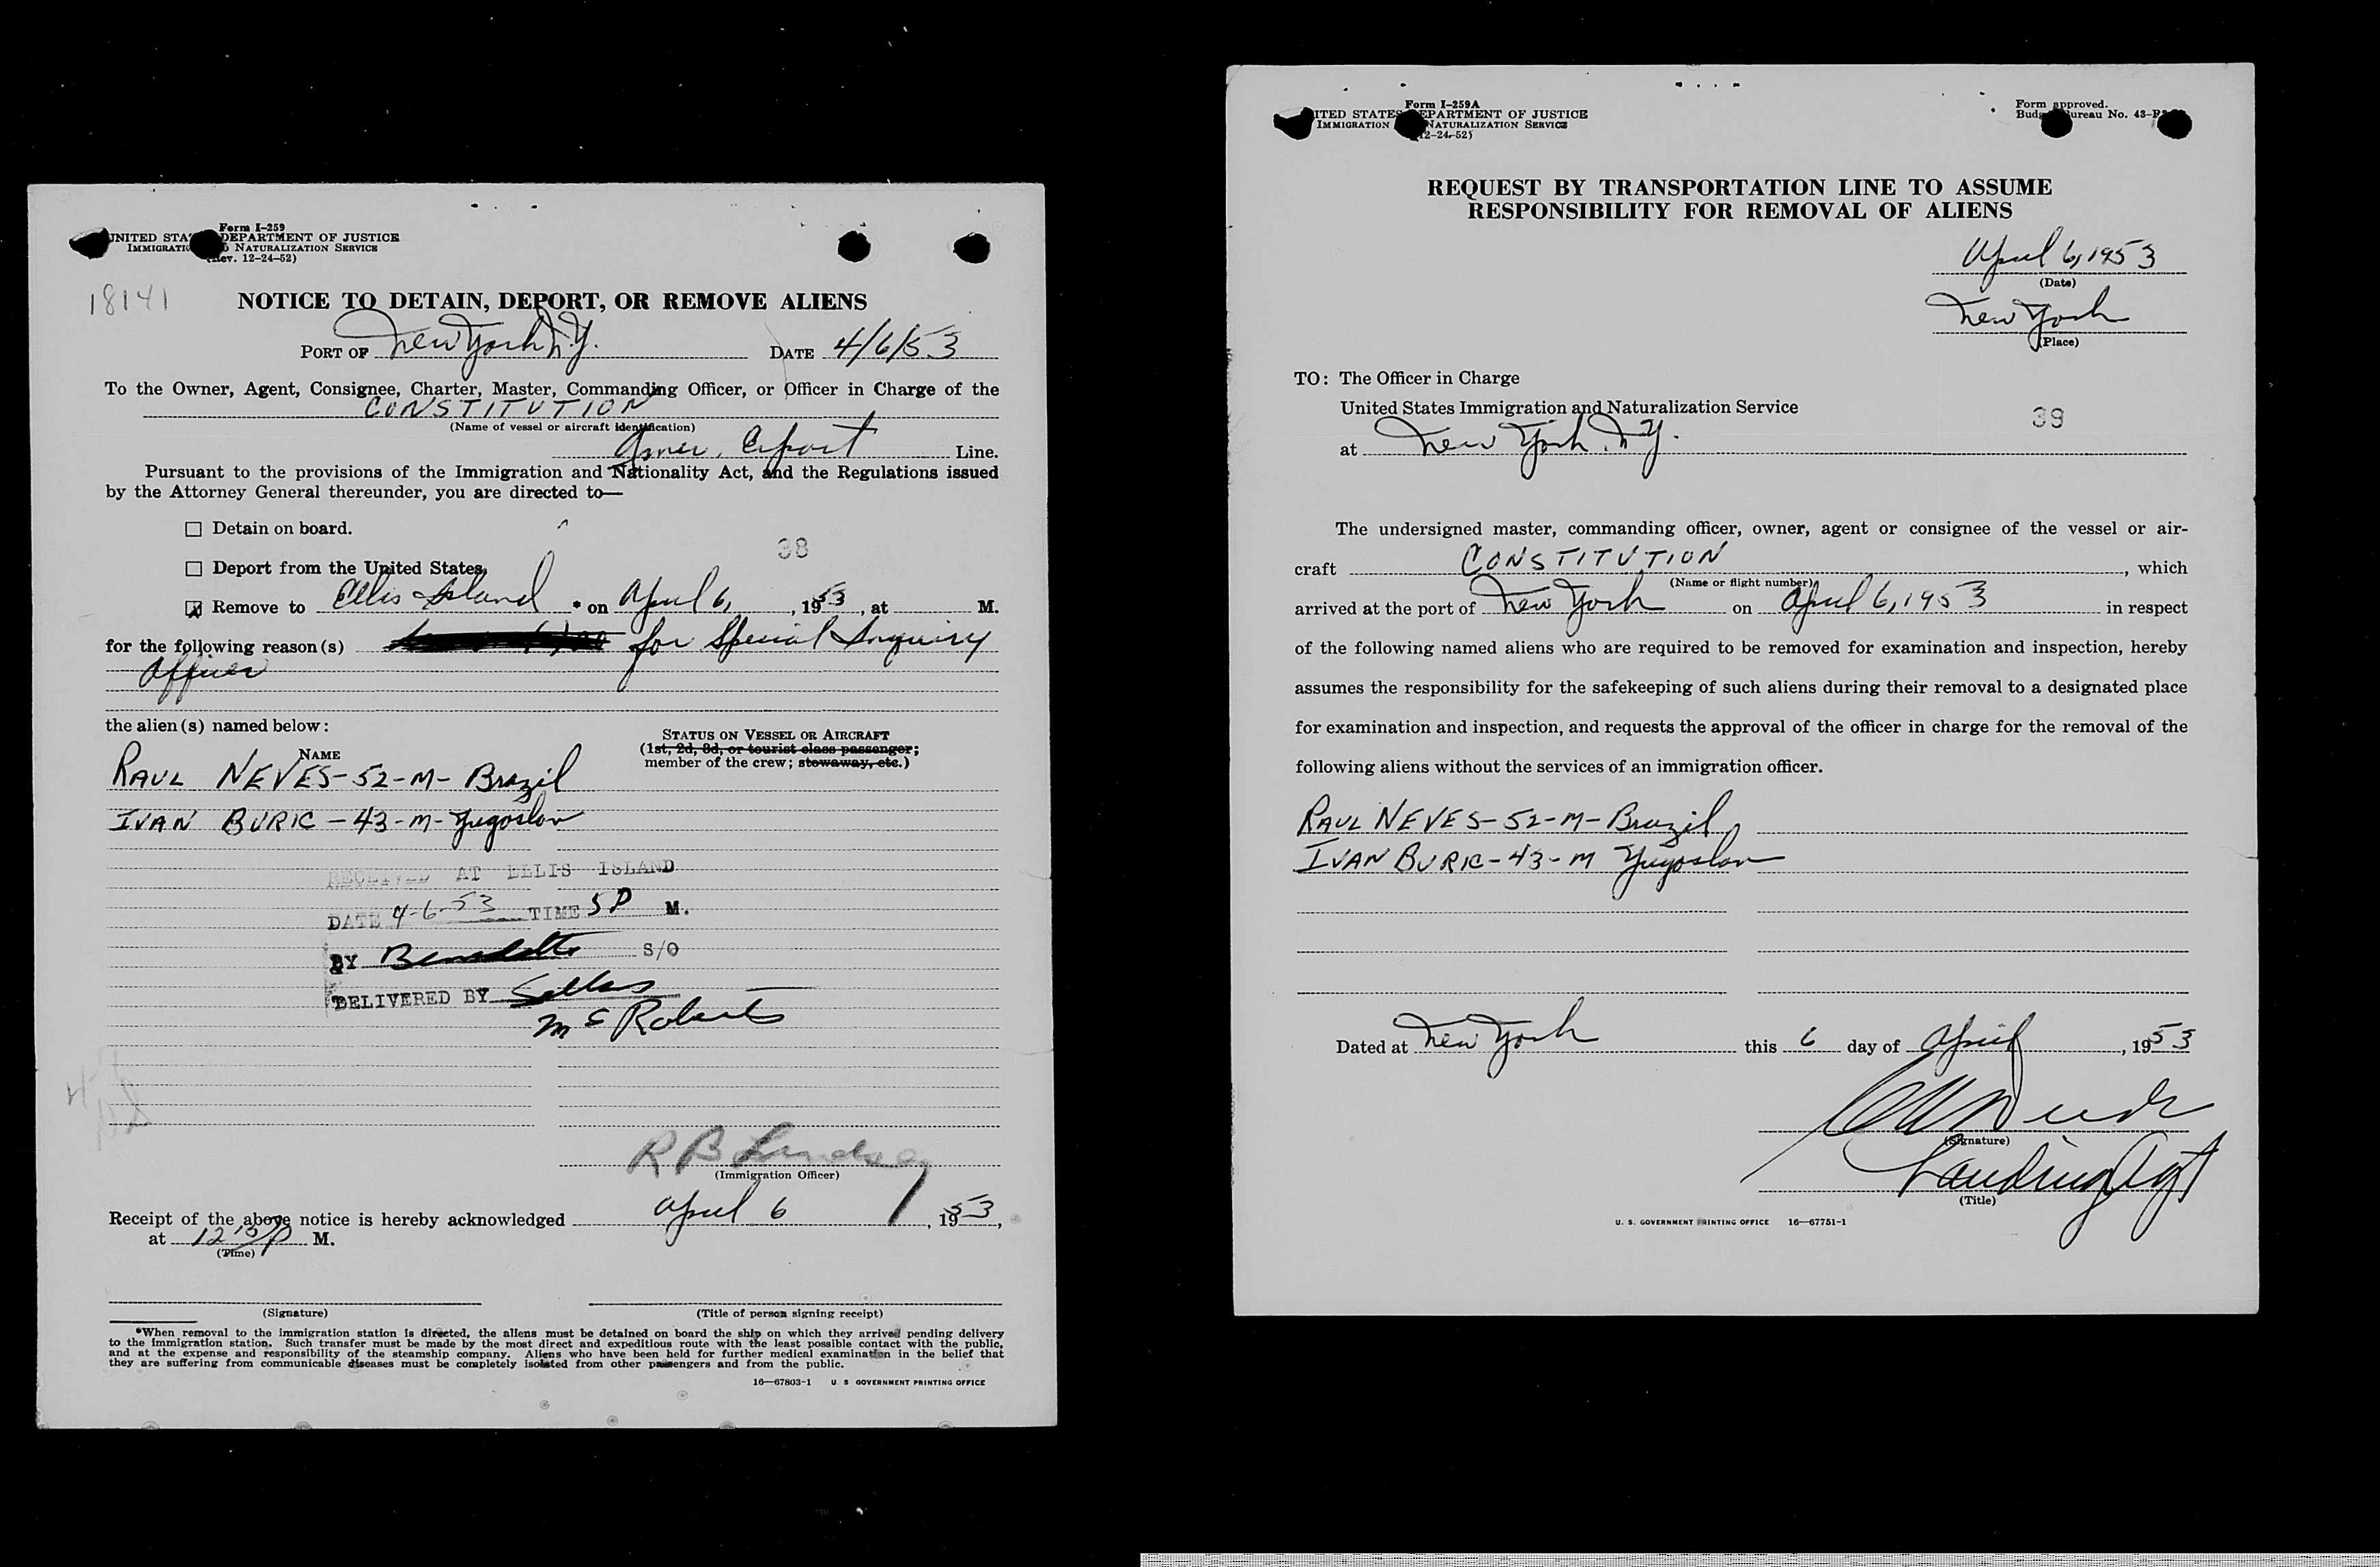 Form I-259
UNITED STA DEPARTMENT OF JUSTICE
IMMIGRATI NATURALIZATION SERVICE
(Rev. 12-24-52)
18141
NOTICE TO DETAIN, DEPORT, OR REMOVE ALIENS
PORT OF New York N.Y. DATE 4/6/53
To the Owner, Agent, Consignee, Charter, Master, Commanding Officer, or Officer in Charge of the
CONSTITUTION
(Name of vessel or aircraft identification)
Amer. Export Line.
Pursuant to the provisions of the Immigration and Nationality Act, and the Regulations issued
by the Attorney General thereunder, you are directed to—
☐ Detain on board.
38
☐ Deport from the United States.
☒ Remove to Ellis Island * on April 6, , 1953, at M.
for the following reason(s) for Special Inquiry
Officer
the alien(s) named below:
STATUS ON VESSEL OR AIRCRAFT
NAME
(1st, 2d, 3d, or tourist class passenger;
member of the crew; stowaway, etc.)
RAUL NEVES-52-M- Brazil
IVAN BURIC-43-M-Yugoslav
RECEIVED AT ELLIS ISLAND
DATE 4-6-53 TIME 5P M.
BY S/O
DELIVERED BY
McRoberts
R B Lindsay
(Immigration Officer)
Receipt of the above notice is hereby acknowledged April 6, 1953,
at 12 P M.
(Time)
(Signature) (Title of person signing receipt)
*When removal to the immigration station is directed, the aliens must be detained on board the ship on which they arrived pending delivery
to the immigration station. Such transfer must be made by the most direct and expeditious route with the least possible contact with the public,
and at the expense and responsibility of the steamship company. Aliens who have been held for further medical examination in the belief that
they are suffering from communicable diseases must be completely isolated from other passengers and from the public.
16—67803-1 U. S. GOVERNMENT PRINTING OFFICE
Form I-259A
ITED STATES EPARTMENT OF JUSTICE
IMMIGRATION NATURALIZATION SERVICE
12-24-52)
Form approved.
Budg ureau No. 43-R
REQUEST BY TRANSPORTATION LINE TO ASSUME
RESPONSIBILITY FOR REMOVAL OF ALIENS
April 6, 1953
(Date)
New York
(Place)
TO: The Officer in Charge
United States Immigration and Naturalization Service
39
at New York, N.Y.
The undersigned master, commanding officer, owner, agent or consignee of the vessel or air-
craft CONSTITUTION, which
(Name or flight number)
arrived at the port of New York on April 6, 1953 in respect
of the following named aliens who are required to be removed for examination and inspection, hereby
assumes the responsibility for the safekeeping of such aliens during their removal to a designated place
for examination and inspection, and requests the approval of the officer in charge for the removal of the
following aliens without the services of an immigration officer.
RAUL NEVES-52-M-Brazil
IVAN BURIC-43-M Yugoslav
Dated at New York this 6 day of April, 1953
(Signature)
Landing Agt
(Title)
U. S. GOVERNMENT PRINTING OFFICE 16—67751-1